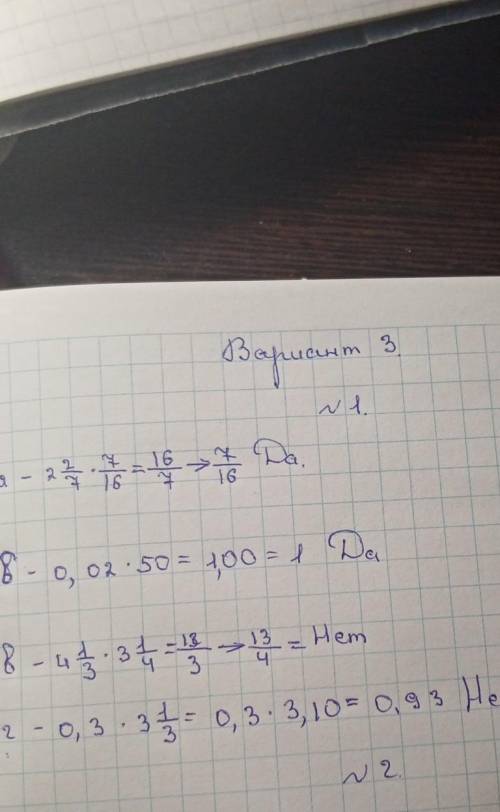 Вариант 3
№1.
а - 2 2/7 · 7/16 = 16/7 → 7/16 Да.
б - 0,02 · 50 = 1,00 = 1 Да
в - 4 1/3 · 3 1/4 = 13/3 → 13/4 = Нет
г - 0,3 · 3 1/3 = 0,3 · 3,10 = 0,93 Не
№2.